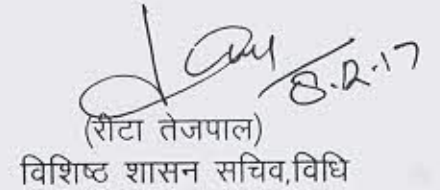 8.2.17
(रीटा तेजपाल)
विशिष्ठ शासन सचिव,विधि